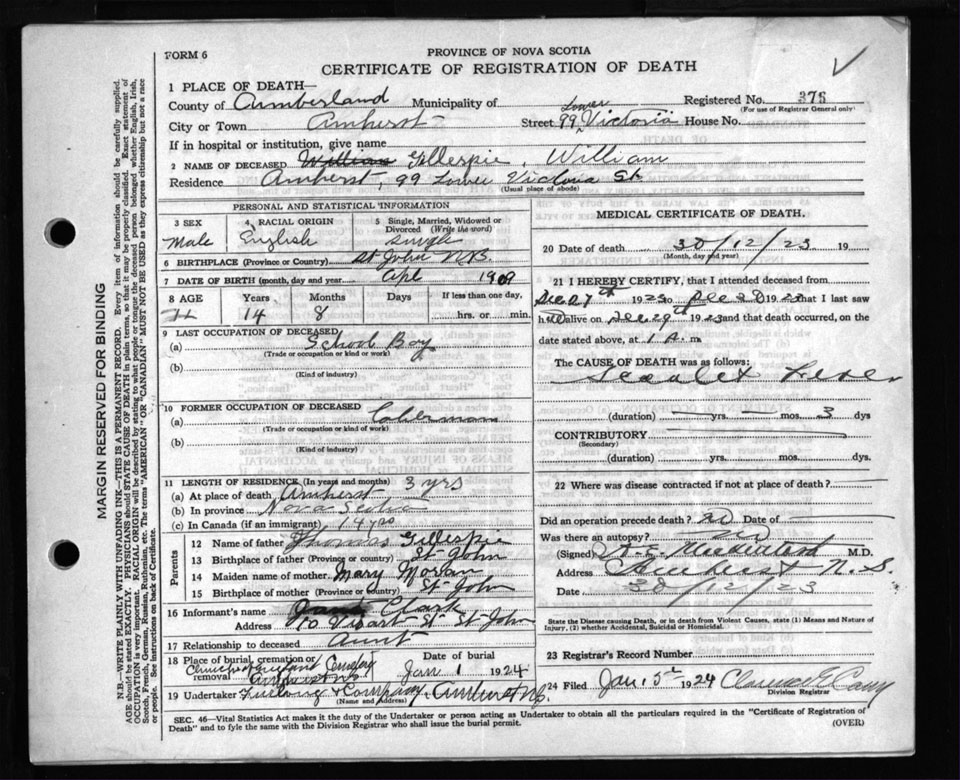 FORM 6
PROVINCE OF NOVA SCOTIA
CERTIFICATE OF REGISTRATION OF DEATH
1 PLACE OF DEATH—
County of Cumberland Municipality of Registered No. 375
(For use of Registrar General only)
City or Town Amherst Street 99 Lower Victoria House No.
If in hospital or institution, give name
2 NAME OF DECEASED William Gillespie, William
Residence Amherst, 99 Lower Victoria St.
(Usual place of abode)
PERSONAL AND STATISTICAL INFORMATION
3 SEX Male
4 RACIAL ORIGIN English
5 Single, Married, Widowed or Divorced (Write the word) single
6 BIRTHPLACE (Province or Country) St John N.B.
7 DATE OF BIRTH (month, day and year) Apl 1909
8 AGE Years Months Days If less than one day,
14 8 hrs. or min.
9 LAST OCCUPATION OF DECEASED
(a) School Boy
(Trade or occupation or kind or work)
(b)
(Kind of industry)
10 FORMER OCCUPATION OF DECEASED
(a)
(Trade or occupation or kind of work)
(b)
(Kind of industry)
11 LENGTH OF RESIDENCE (In years and months) 3 yrs
(a) At place of death Amherst
(b) In province Nova Scotia
(c) In Canada (if an immigrant) 14 yrs
Parents
12 Name of father Thomas Gillespie
13 Birthplace of father (Province or country) St John
14 Maiden name of mother Mary Moran
15 Birthplace of mother (Province or country) St John
16 Informant's name Clark
Address 10 St St John
17 Relationship to deceased Aunt
18 Place of burial, cremation or removal Cemetery Date of burial Jan 1 1924
19 Undertaker Furlong & Company, Amherst N.S.
(Name and Address)
MEDICAL CERTIFICATE OF DEATH.
20 Date of death 30/12/23 19
(Month, day and year)
21 I HEREBY CERTIFY, that I attended deceased from
Dec 27th 1923 to Dec 30 1923 that I last saw
h alive on Dec. 29th 1923 and that death occurred, on the
date stated above, at 1 A. m.
The CAUSE OF DEATH was as follows:
Scarlet Fever
(duration) yrs. mos. 3 dys
CONTRIBUTORY
(Secondary)
(duration) yrs. mos. dys.
22 Where was disease contracted if not at place of death?
Did an operation precede death? no Date of
Was there an autopsy? no
(Signed) M.D.
Address Amherst N.S.
Date 30/12/23
State the Disease causing Death, or in death from Violent Causes, state (1) Means and Nature of
Injury, (2) whether Accidental, Suicidal or Homicidal.
23 Registrar's Record Number
24 Filed Jan 5th 1924 Clarence E Casey
Division Registrar
SEC. 46—Vital Statistics Act makes it the duty of the Undertaker or person acting as Undertaker to obtain all the particulars required in the "Certificate of Registration of
Death" and to fyle the same with the Division Registrar who shall issue the burial permit.
(OVER)
MARGIN RESERVED FOR BINDING
N.B.—WRITE PLAINLY WITH UNFADING INK—THIS IS A PERMANENT RECORD. Every item of information should be carefully supplied.
AGE should be stated EXACTLY. PHYSICIANS should STATE CAUSE OF DEATH in plain terms, so that it may be properly classified. Exact statement of
OCCUPATION is very important. RACIAL ORIGIN will be described by stating to what people or tongue the deceased person belonged whether English, Irish,
Scotch, French, German, Russian, Ruthenian, etc. The terms "AMERICAN" OR "CANADIAN" MUST NOT BE USED as they express citizenship but not a race
or people. See instructions on back of Certificate.